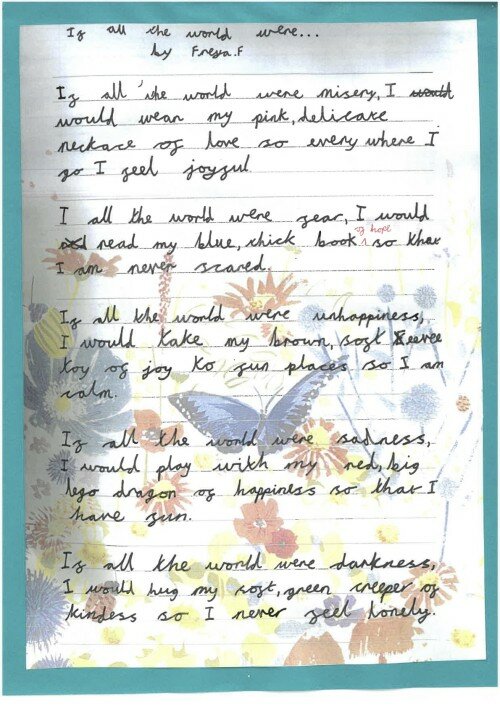 If all the world were...
by Freya.F
If all the world were misery, I would
would wear my pink, delicate
neckace of love so every where I
go I feel joyful.
I all the world were fear, I would
read my blue, thick book of hope so that
I am never scared.
If all the world were unhappiness,
I would take my brown, soft Eevee
toy of joy to fun places so I am
calm.
If all the world were sadness,
I would play with my red, big
lego dragon of happiness so that I
have fun.
If all the world were darkness,
I would hug my soft, green creeper of
kindess so I never feel lonely.